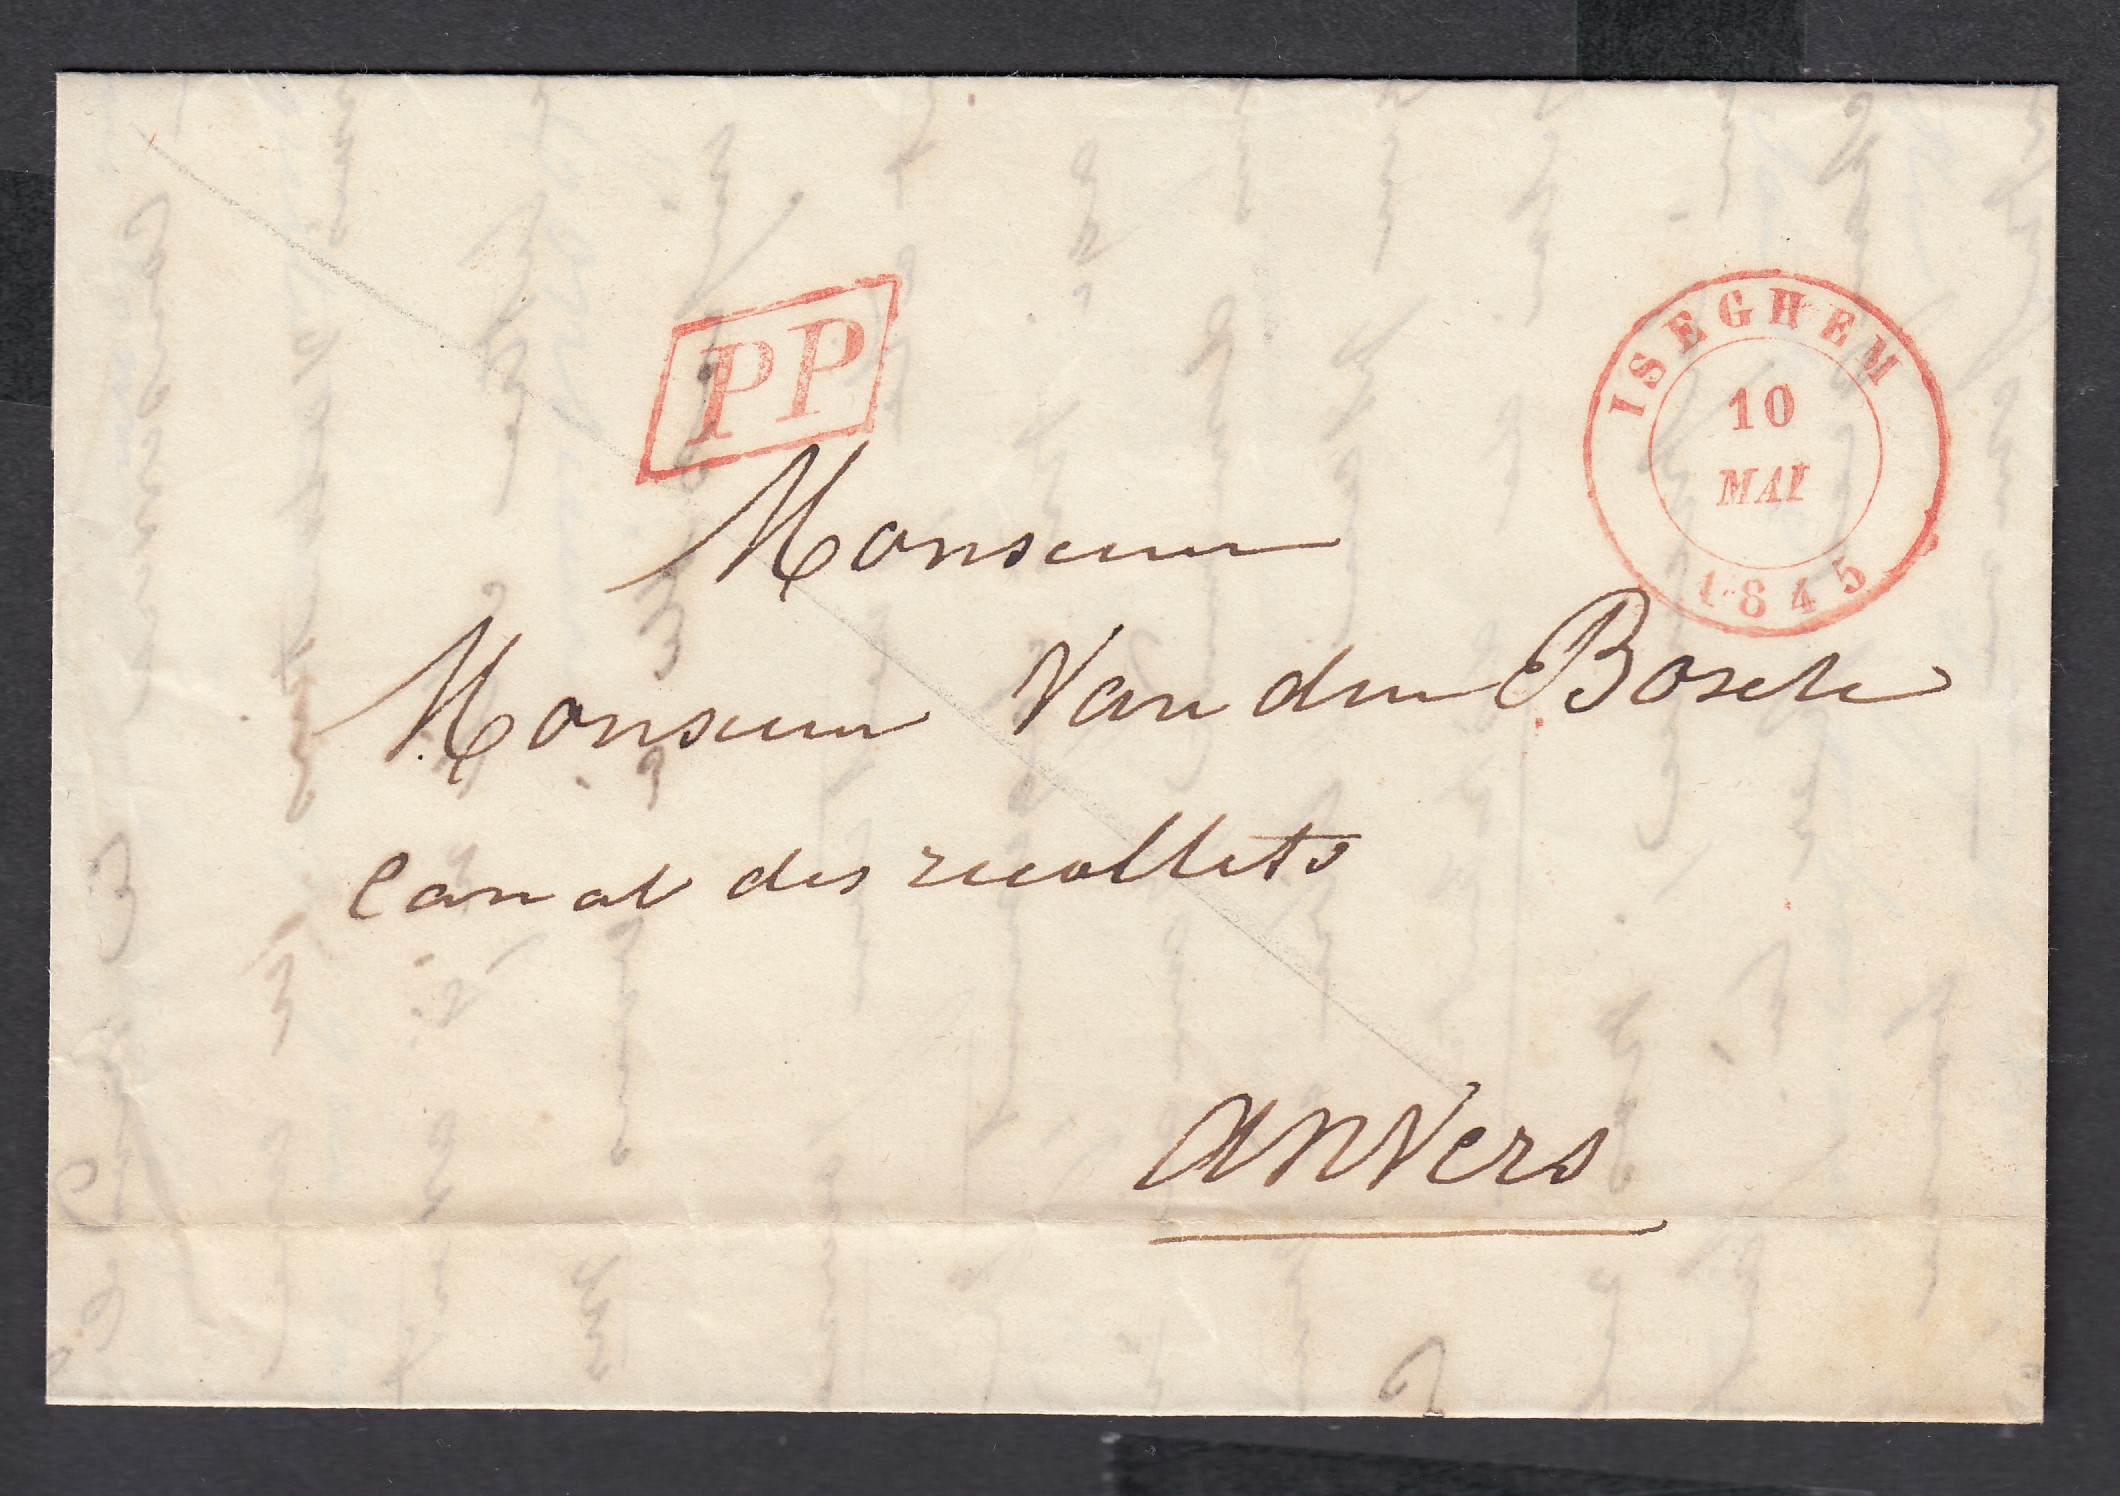 PP
ISEGHEM
10
MAI
1845
Monsieur
Monsieur Van den Bosch
Canal des recollets
Anvers